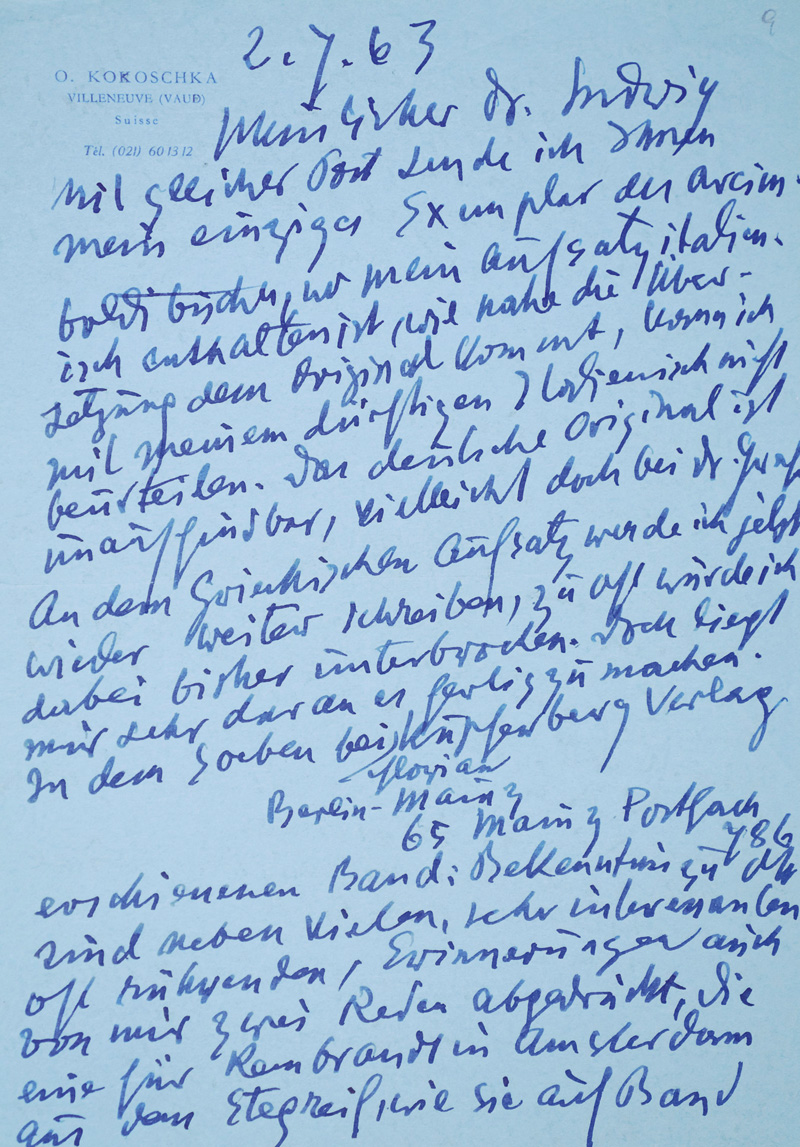 9
2.7.63
O. KOKOSCHKA
VILLENEUVE (VAUD)
Suisse
Tél. (021) 60 13 12
Dr. Ludwig
mit gleicher Post sende ich Ihnen
mein einziges Exemplar der Arcim-
boldi, wo mein Aufsatz italien-
isch enthalten ist, wie nahe die Über-
setzung dem Original kommt, kann ich
mit meinem dürftigen Italienisch nicht
beurteilen. Das deutsche Original ist
unauffindbar, vielleicht doch bei Dr.
An dem Griechischen Aufsatz werde ich jetzt
wieder weiter schreiben, zu oft wurde ich
dabei bisher unterbrochen. Doch liegt
mir sehr daran es fertig zu machen.
In dem soeben bei Kupferberg Verlag
Florian
Berlin-Mainz
65 Mainz Postfach
786
erschienenen Band: Bekenntnis zu
sind neben vielen, sehr interessanten
oft rührenden, Erinnerungen auch
von mir zwei Reden abgedruckt, die
eine für Rembrandt in Amsterdam
aus dem Stegreif, wie sie auf Band